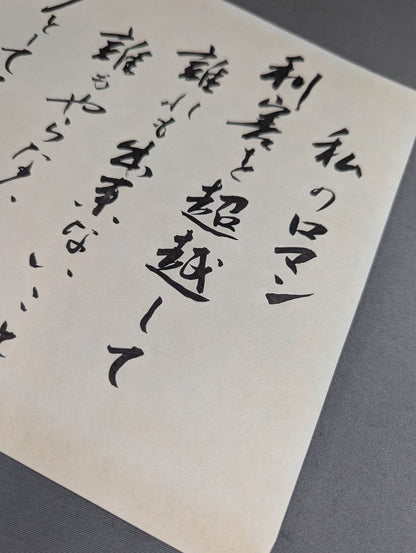 私のロマン
利害を超越して
誰れも出来ない
誰もやらない
として